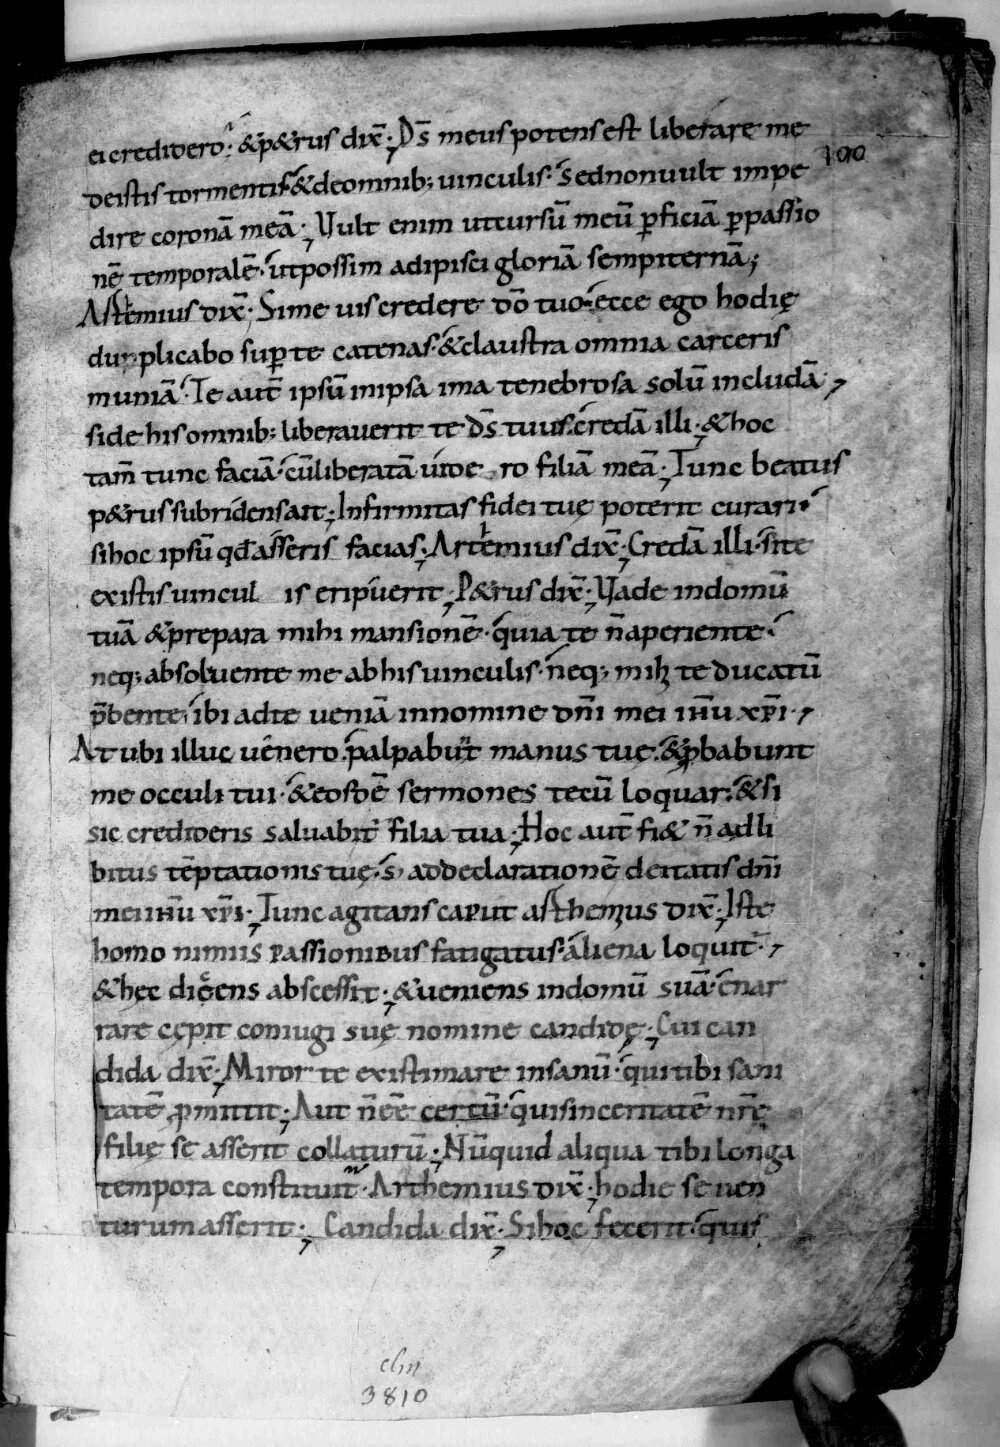 ei credidero. &p&rus dix̄. Ds̄ meus potens est liberare me
190
deistis tormentis &deomnib; uinculis. Sednonuult impe
dire coronā meā. Vult enim utcursū meū ꝑficiā ꝑpassio
nē temporalē. utpossim adipisci gloriā sempiternā;
Arthemius dix̄. Sime uis credere dō tuo. ecce ego hodię
duplicabo suꝑ te catenas. &claustra omnia carceris
muniā. Te aut̄ ipsū inipsa ima tenebrosa solū includā;
side hisomnib; liberauerit te Ds̄ tuus. credā illi. &hoc
tam̄ tunc faciā. cū liberatā uidero filiā meā. Tunc beatus
p&rus subridens ait. Infirmitas fidei tuę poterit curari.
sihoc ipsū qđ asseris facias. Arthemius dix̄. Credā illi. site
existis uinculis eripuerit. P&rus dix̄. Vade indomū
tuā &prepara mihi mansionē. quia te n̄ aperiente.
neq; absoluente me abhis uinculis. neq; mihi te ducatū
p̄bente. ibi adte ueniā innomine dn̄i mei ihū xp̄i.
At ubi illuc uenero. palpabunt manus tuę. &ꝓbabunt
me occuli tui. &eosdē sermones tecū loquar. &si
sic credideris saluabit᷑ filia tua. Hoc aut̄ fi& n̄ adli
bitus tēptationis tuę. s; addeclarationē deitatis dn̄i
mei ihū xp̄i. Tunc agitans caput arthemius dix̄. Iste
homo nimiis passionibus fatigatus. aliena loquit᷑.
&hęc dicens abscessit. &ueniens indomū suā. enar
rare cępit coniugi suę nomine candidę. Cui can
dida dix̄. Miror te existimare insanū. qui tibi sani
tatē ꝓmittit. Aut n̄ eē certū. quisinceritatē nr̄ę
filię se asserit collaturū. Nūquid aliqua tibi longa
tempora constituit. Arthemius dix̄. hodie se uen
turum asserit. Candida dix̄. Sihoc fecerit. quis
clm
3810